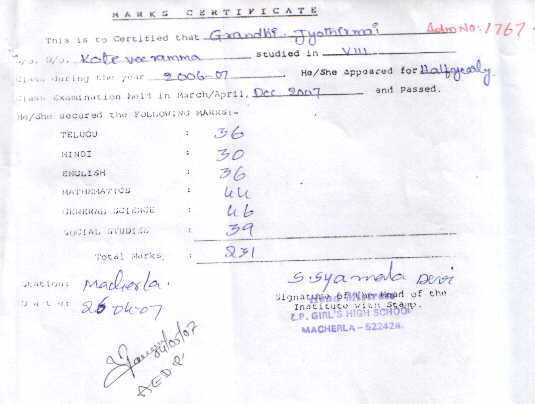 MARKS CERTIFICATE
This is to Certified that Grandhi Jyothirmai Adm No: 1767
S/o. D/o. Koteveeramma studied in VIII
Class during the year 2006-07 He/She Appeared for Halfyearly
Class Examination held in March/April, Dec 2007 and Passed.
He/She secured the FOLLOWING MARKS:-
TELUGU : 36
HINDI : 30
ENGLISH : 36
MATHEMATICS : 44
GENERAL SCIENCE : 46
SOCIAL STUDIES : 39
Total Marks : 231
Station: Macherla.
Date: 26-04-07
S. Syamala Devi
Signature of The Head of the
Institute with Stamp.
Z.P. GIRL'S HIGH SCHOOL
MACHERLA - 522426.